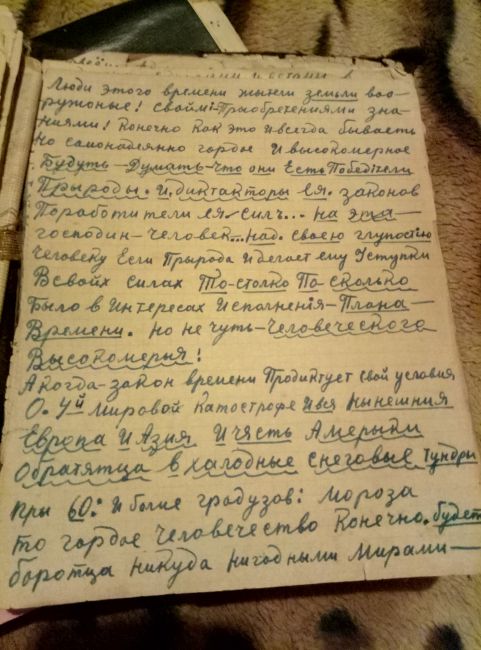 Люди этого времени жытели земли воо-
ружоные! своймі-Приобретениями зна-
ниями! Конечно как это и всегда бываеть
но самонадеянно гордое и высокомерное
Будуть-Думать-что они Есть Победители
Прыроды. и. диктакторы ея. законов
Поработители ея силъ... на
господин-Человек...над. своею глупостію
Человеку Если Прырода и делает ему Уступки
Всвойх силах То-столко По сколько
Было в Интересах Исполненія-Плана-
Времени. но не чуть-Человеческого
Высокомерыя!
Акогда-закон времени Продиктует свой условия
О. 4й мировой Катострофе Ився Нынешния
Европа и Азия и часть Амерыки
Обратятца в халодные снеговые тундры
пры 60: и более градузов: мороза
то гордое человечество Конечно. будет
боротца никуда нигодными мирами-